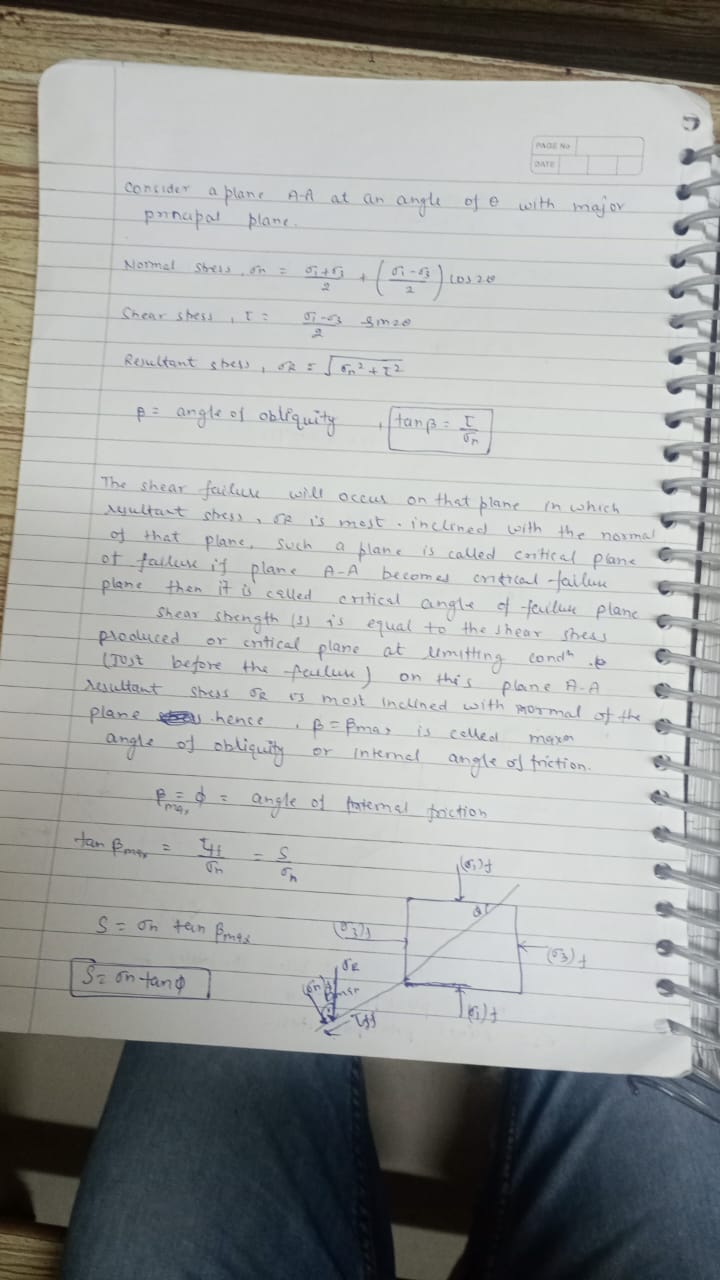 PAGE No
DATE
Consider a plane A-A at an angle of θ with major
principal plane.
Normal stress, σn = σ1+σ3/2 + (σ1-σ3/2) cos2θ
Shear stress, τ = σ1-σ3/2 sin2θ
Resultant stress, σR = √σn²+τ²
β = angle of obliquity, tanβ = τ/σn
The shear failure will occur on that plane in which
resultant stress, σR is most inclined with the normal
of that plane, such a plane is called critical plane
of failure if plane A-A becomes critical failure
plane then it is called critical angle of failure plane
Shear strength (s) is equal to the shear stress
produced or critical plane at limitting condn
(Just before the failure) on this plane A-A
resultant stress σR is most inclined with normal of the
plane hence, β = βmax is called maxm
angle of obliquity or internal angle of friction.
βmax = ϕ = angle of internal friction
tan βmax = τff/σn = S/σn
(σ1)f
S = σn tan βmax
(σ3)f
(σ3)f
S = σn tanϕ
σR
τff
(σ1)f